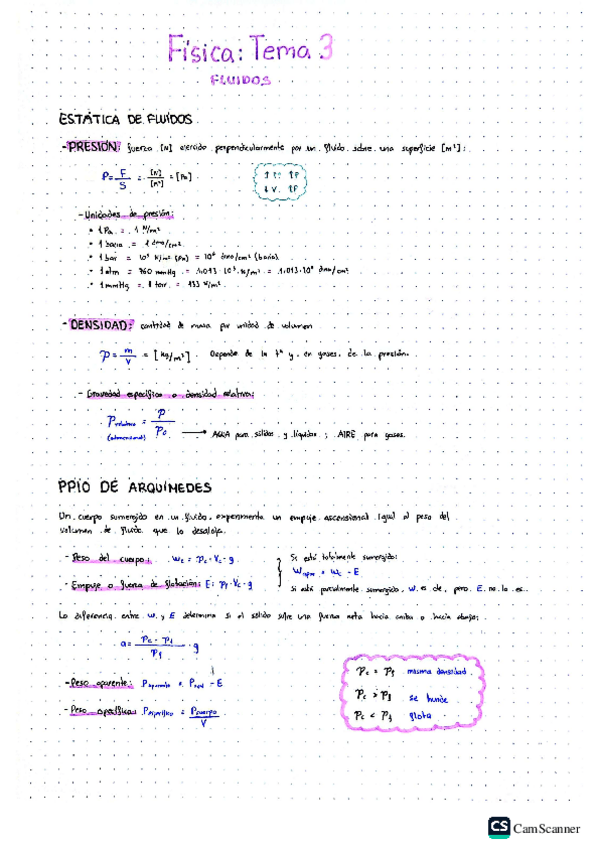 Física: Tema 3
FLUIDOS
ESTÁTICA DE FLUÍDOS
- PRESIÓN: fuerza [N] ejercida perpendicularmente por un fluido sobre una superficie [m²]:
P = F/S = [N]/[m²] = [Pa]
↑ m ↑P
↓ V ↑P
- Unidades de presión:
• 1 Pa = 1 N/m²
• 1 baria = 1 dina/cm²
• 1 bar = 10⁵ N/m² (Pa) = 10⁶ dina/cm² (baria)
• 1 atm = 760 mmHg = 1,013·10⁵ N/m² = 1,013·10⁶ dina/cm²
• 1 mmHg = 1 torr = 133 N/m²
- DENSIDAD: cantidad de masa por unidad de volumen
ρ = m/V = [kg/m³] Depende de la tª y, en gases, de la presión.
- Gravedad específica o densidad relativa:
ρ relativa = ρ/ρ₀
(adimensional)
→ AGUA para sólidos y líquidos ; AIRE para gases.
PPIO DE ARQUÍMEDES
Un cuerpo sumergido en un fluido, experimenta un empuje ascensional igual al peso del
volumen de fluido que lo desaloja.
- Peso del cuerpo: Wc = ρc · Vc · g
- Empuje o fuerza de flotación: E = ρf · Vc · g
Si está totalmente sumergido:
W = Wc - E
Si está parcialmente sumergido, W es de, pero E no lo es.
La diferencia entre W y E determina si el sólido sufre una fuerza neta hacia arriba o hacia abajo:
a = ρc - ρf / ρf · g
- Peso aparente: P aparente = P real - E
- Peso específico: P específico = P cuerpo / V
ρc = ρf misma densidad
ρc > ρf se hunde
ρc < ρf flota
CS CamScanner